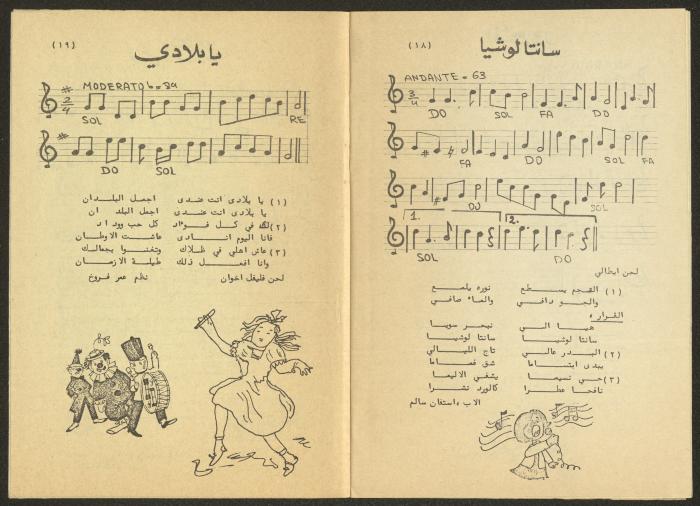 (١٨)
سانتا لوشيا
ANDANTE = 63
3/4
DO SOL FA DO
FA DO SOL FA
DO SOL
1. 2.
SOL DO
لحن ايطالي
(١) النجم يسطع نوره يلمع
والجو دافي والماء صافي
القرار :
هيا الي نبحر سويا
سانتا لوشيا سانتا لوشيا
(٢) البدر عالي تاج الليالي
يبدى ابتساما شق غماما
(٣) حي نسيما يشفي الاليما
نافحا عطرا كالورد نشرا
الاب اسطفان سالم
(١٩)
يا بلادي
MODERATO
2/4
SOL RE
DO SOL
(١) يا بلادى انت عندى اجمل البلدان
يا بلادى انت عندى اجمل البلد ان
(٢) لك في كل فواد كل حب ووداد
فانا اليوم انادى عاشت الاوطان
(٣) عاش اهلي في ظلالك وتغنوا بجمالك
وانا افعل ذلك طيلة الازمان
لحن فليفل اخوان نظم عمر فروخ